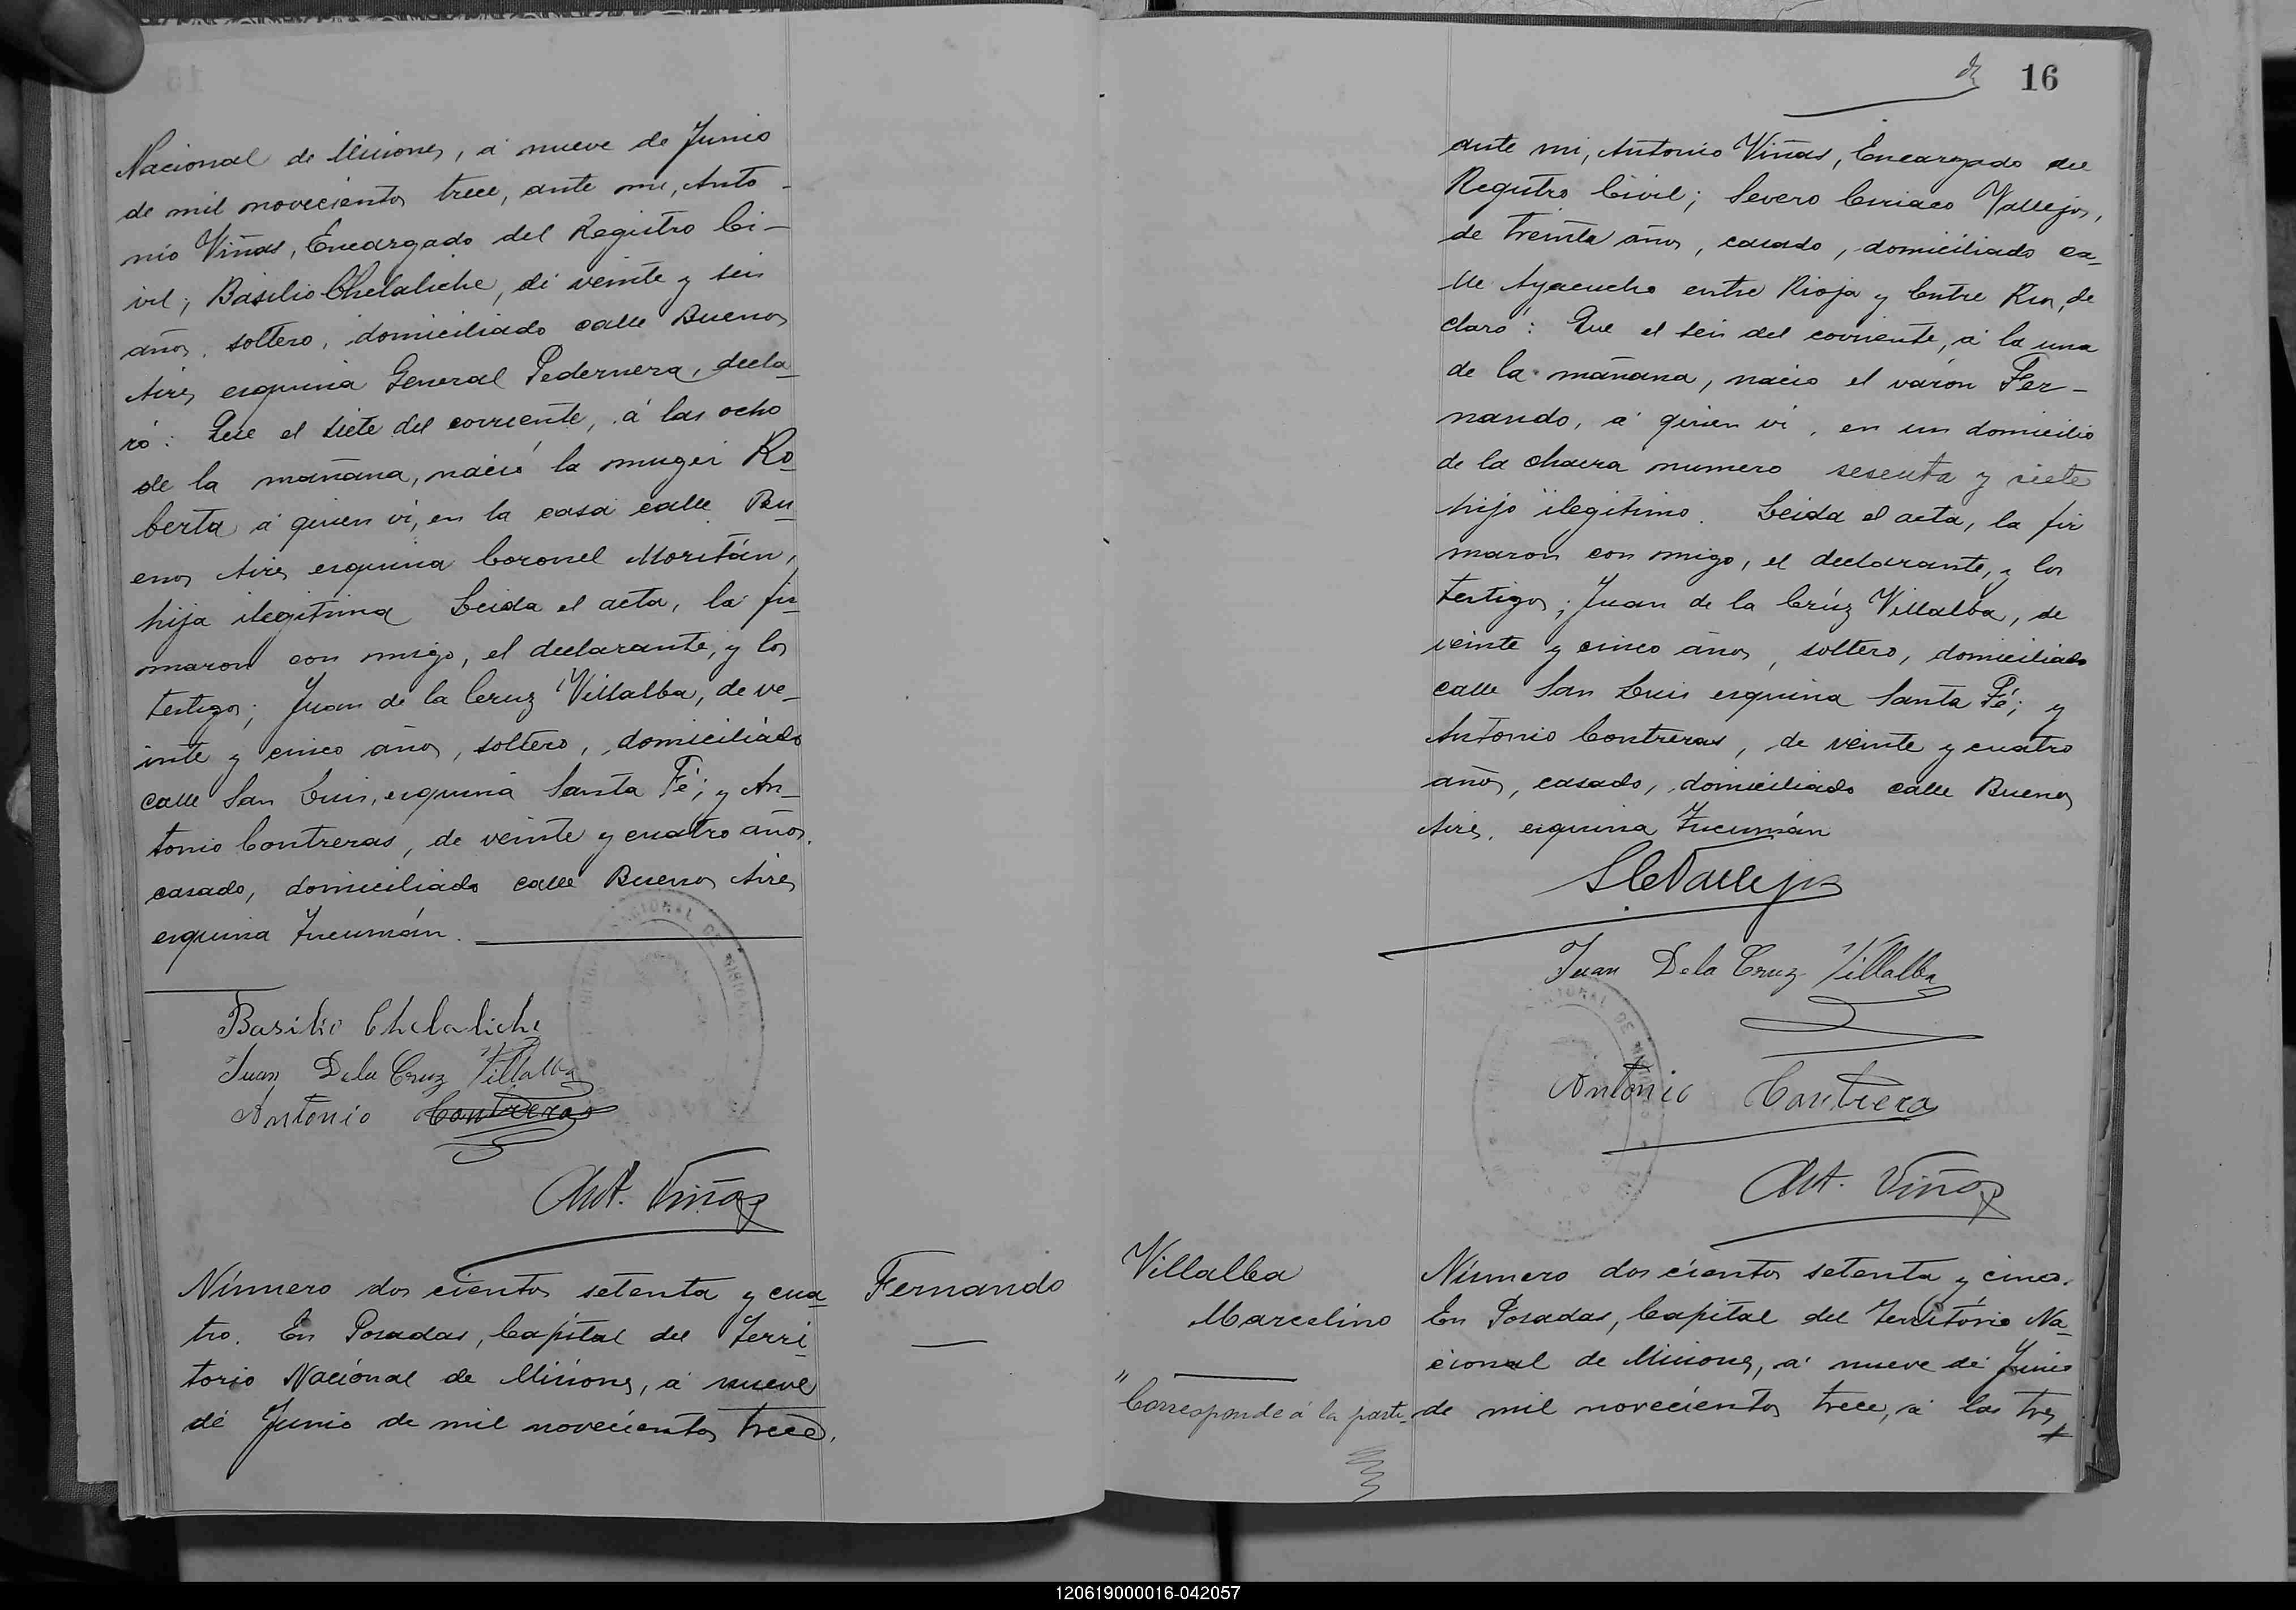 Nacional de Misiones, á nueve de Junio
de mil novecientos trece, ante mi, Anto-
nio Viñas, Encargado del Registro Ci-
vil; Basilio Chelaliche, de veinte y seis
años, soltero, domiciliado calle Buenos
Aires esquina General Pedernera, decla-
ró: Que el siete del corriente, á las ocho
de la mañana, nació la muger Ro-
berta á quien vi, en la casa calle Bu-
enos Aires esquina Coronel Moritán,
hija ilegitima Leida el acta, la fir-
maron con migo, el declarante, y los
testigos; Juan de la Cruz Villalba, de ve-
inte y cinco años, soltero, domiciliado
calle San Luis, esquina Santa Fé; y An-
tonio Contreras, de veinte y cuatro años.
casado, domiciliado calle Buenos Aires
esquina Tucumán.
Basilio Chelaliche
Juan Dela Cruz Villalba
Antonio Contreras
Ant. Viñas
Número dos cientos setenta y cua-
tro. En Posadas, Capital del Terri-
torio Nacional de Misiones, á nueve
de Junio de mil novecientos trece,
Fernando
16
ante mi, Antonio Viñas, Encargado del
Registro Civil; Severo Ciriaco Vallejos,
de treinta años, casado, domiciliado ca-
lle Ayacucho entre Rioja y Entre Rios, de
claró: Que el seis del corriente, á la una
de la mañana, nació el varón Fer-
nando, á quien vi, en un domicilio
de la chacra numero sesenta y siete
hijo ilegitimo. Leida el acta, la fir
maron con migo, el declarante, y los
testigos; Juan de la Crúz Villalba, de
veinte y cinco años, soltero, domiciliado
calle San Luis esquina Santa Fé; y
Antonio Contreras, de veinte y cuatro
años, casado, domiciliado calle Buenos
Aires, esquina Tucumán
S C Vallejos
Juan Dela Cruz Villalba
Antonio Contrera
Ant. Viñas
Villalba
Marcelino
"Corresponde á la parti-
Número dos cientos setenta y cinco.
En Posadas, Capital del Territorio Na-
cional de Misiones, á nueve de Junio
de mil novecientos trece, á las tres
120619000016-042057